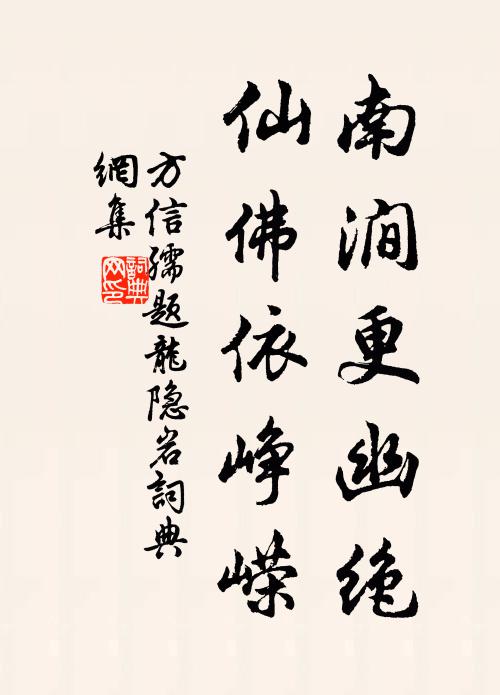 南澗更幽绝
仙佛依峥嵘
方信孺题龍隐岩詞典
網集
詞典
网印